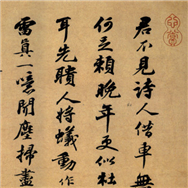 君不見詩人借車無
何足賴晚年更似杜
耳先聵人將蟻動作
雷真一噫聞塵掃盡